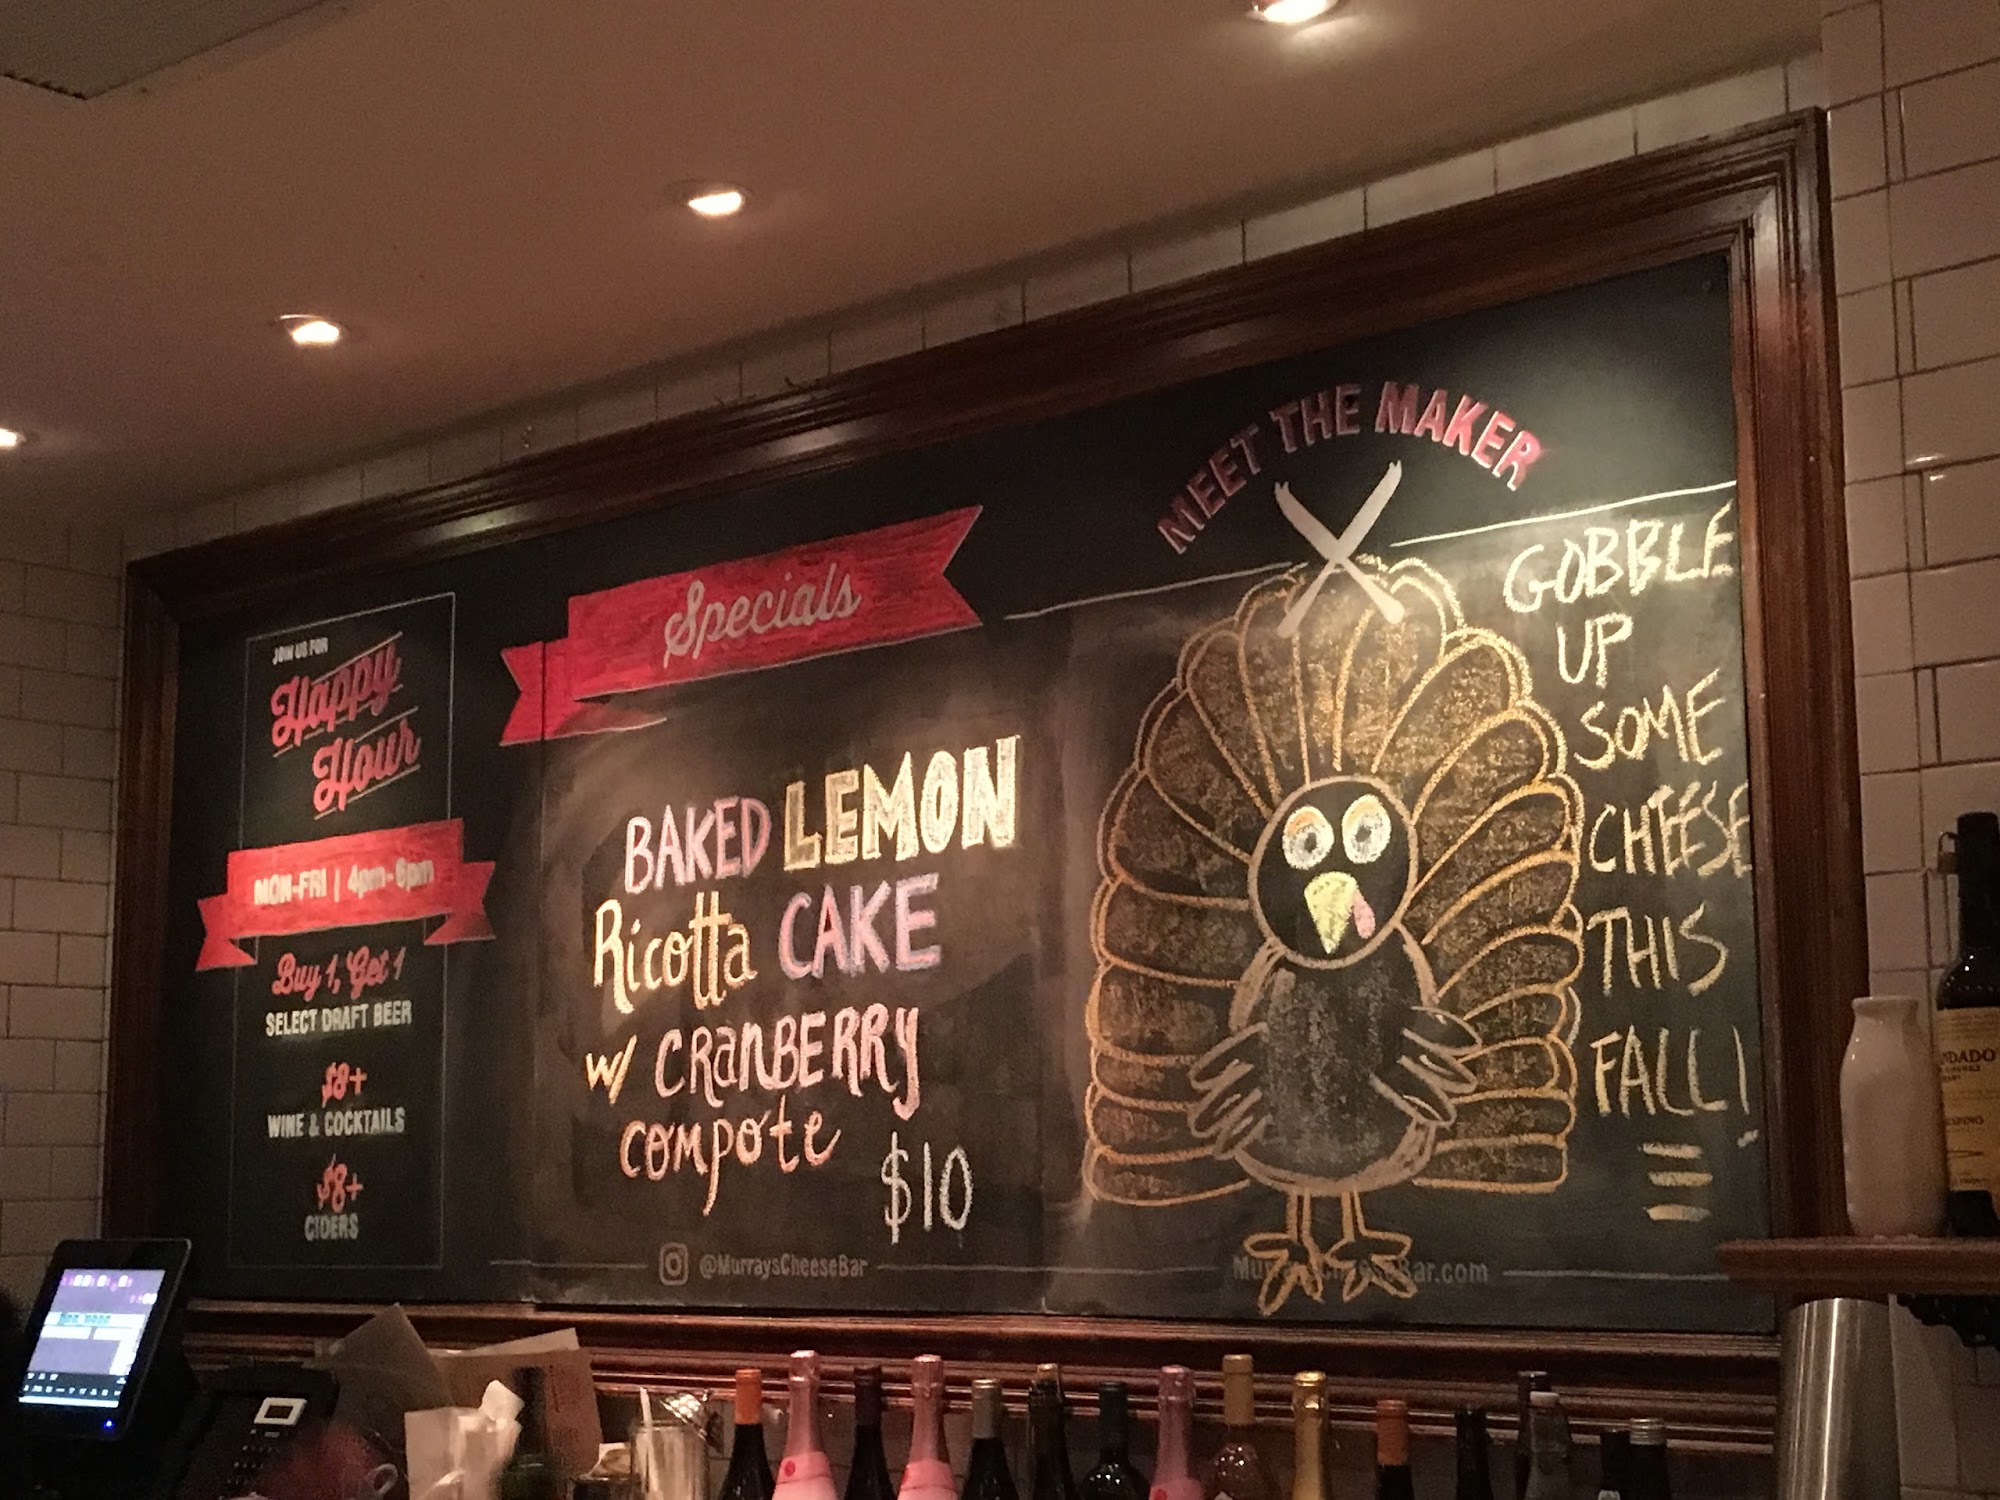 JOIN US FOR
Happy
Hour
MON-FRI | 4pm-6pm
Buy 1, Get 1
SELECT DRAFT BEER
$8+
WINE & COCKTAILS
$8+
CIDERS
Specials
BAKED LEMON
Ricotta CAKE
w/ CRANBERRY
compote
$10
@MurraysCheeseBar
MEET THE MAKER
GOBBLE
UP
SOME
CHEESE
THIS
FALL!